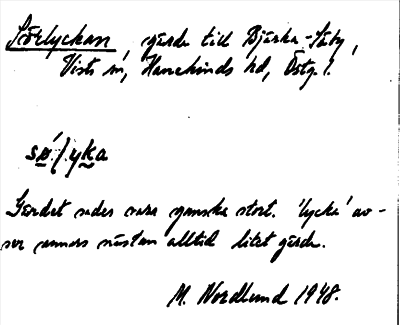 Sörlyckan, gärde till Bjärka-Säby,
Vists sn, Hanekinds hd, Östg. l.
Gärdet sades vara ganska stort. 'lycka' av-
ser annars nästan alltid litet gärde.
M. Nordlund 1948.